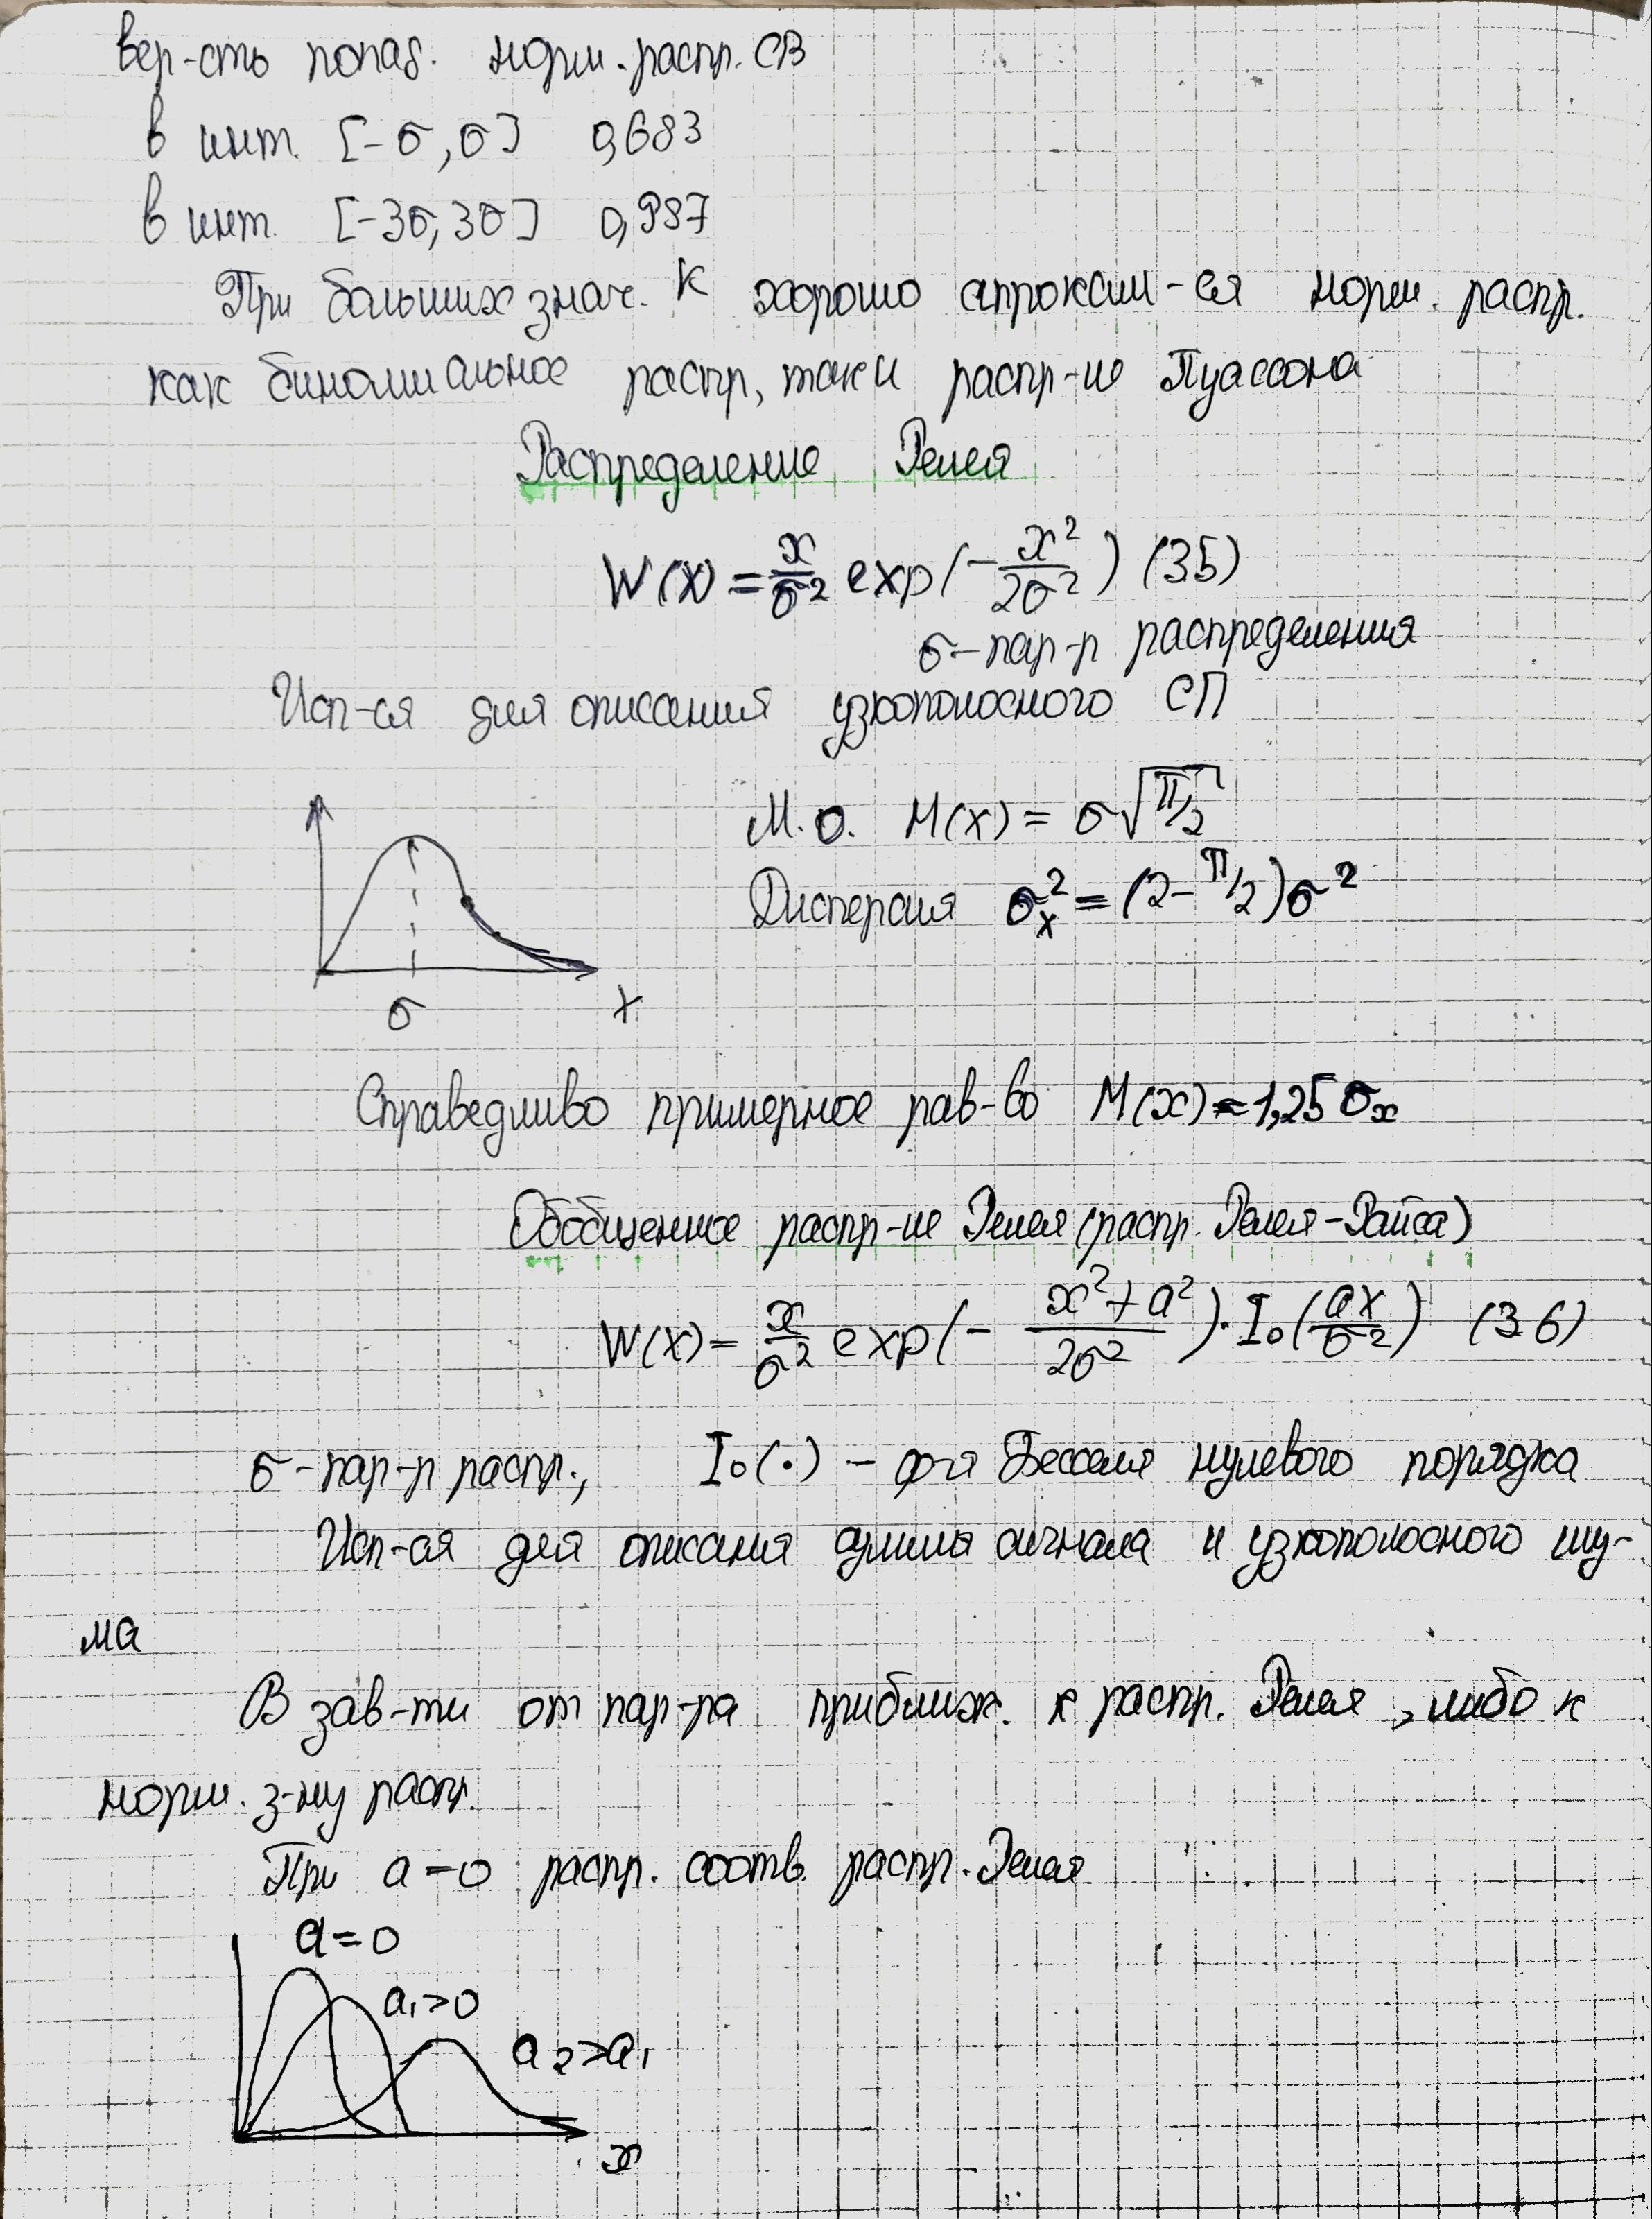 вер-сть попад. норм. распр. СВ
в инт. [-σ, σ] 0,683
в инт. [-3σ, 3σ] 0,987
При больших знач. K хорошо аппроксим-ся норм. распр.
как биномиальное распр, так и распр-ие Пуассона
Распределение Релея
W(x) = x/σ² exp(-x²/2σ²) (35)
σ - пар-р распределения
Исп-ся для описания узкополосного СП
М.О. M(x) = σ√π/2
Дисперсия σx² = (2-π/2)σ²
σ x
Справедливо примерное рав-во M(x) = 1,25 σx
Обобщенное распр-ие Релея (распр. Релея-Райса)
W(x) = x/σ² exp(- x²+a²/2σ²)·I₀(ax/σ²) (36)
σ - пар-р распр., I₀(·) - ф-я Бесселя нулевого порядка
Исп-ся для описания суммы сигнала и узкополосного шу-
ма
В зав-ти от пар-ра приближ. к распр. Релея, либо к
норм. з-ну распр.
При a=0 распр. соотв. распр. Релея
a=0
a₁>0
a₂>a₁
x